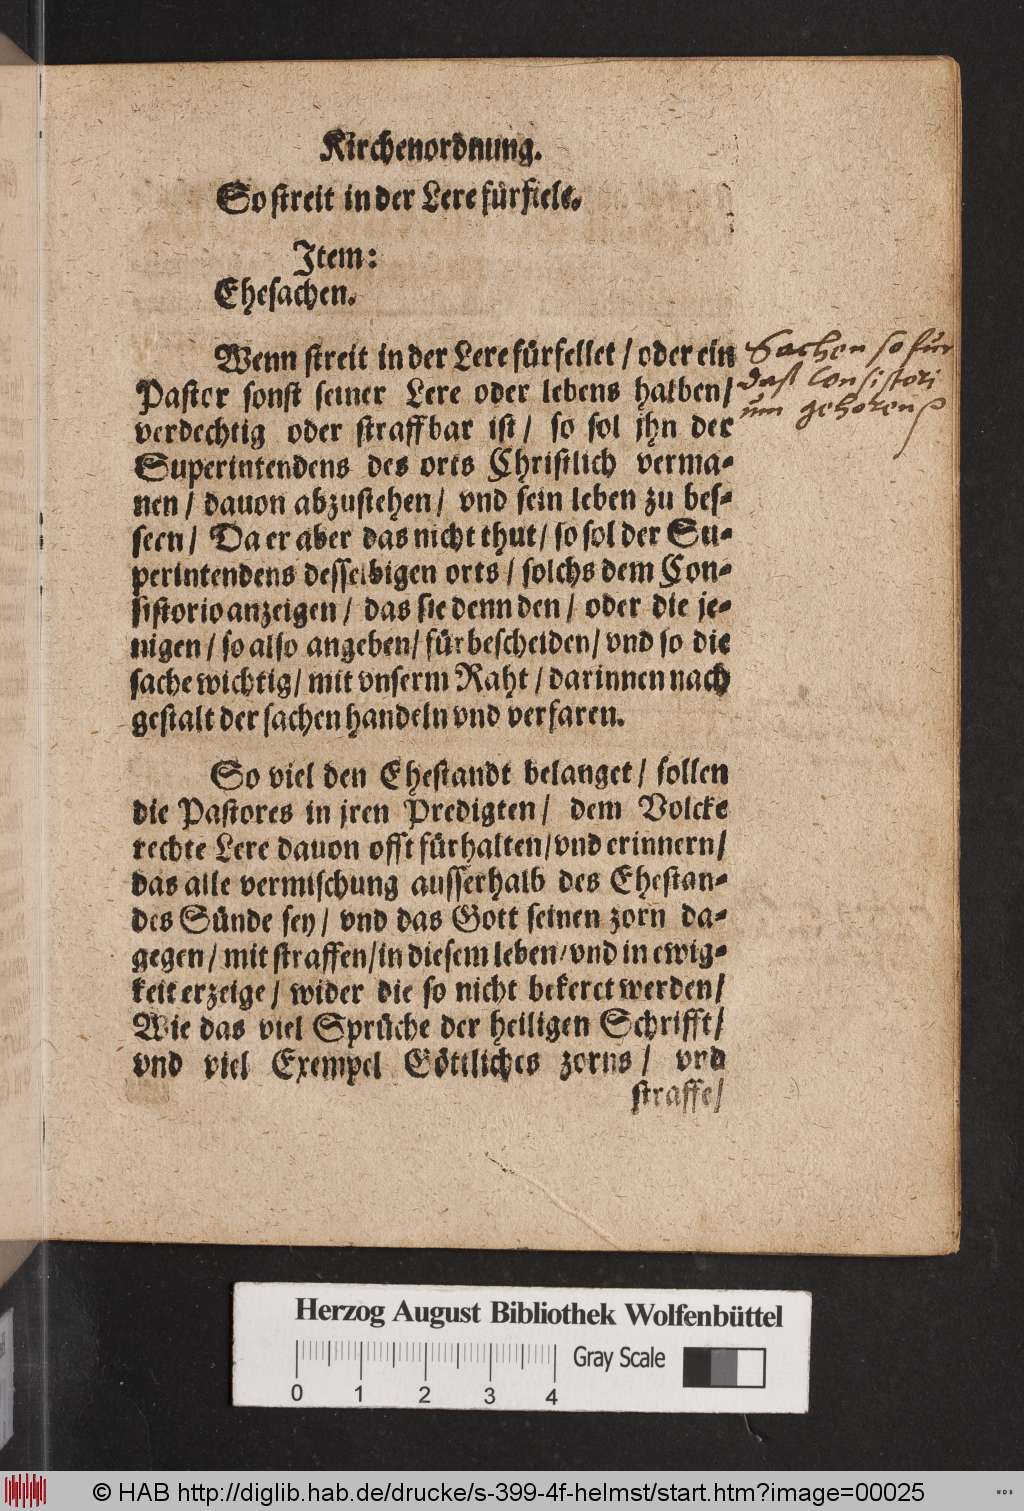 Kirchenordnung.
So streit in der Lere fürfiele.
Item:
Ehesachen.
Wenn streit in der Lere fürfellet / oder ein
Pastor sonst seiner Lere oder lebens halben /
verdechtig oder straffbar ist / so sol jhn der
Superintendens des orts Christlich verma-
nen / dauon abzustehen / vnd sein leben zu bes-
sern / Da er aber das nicht thut / so sol der Su-
perintendens desselbigen orts / solchs dem Con-
sistorio anzeigen / das sie denn den / oder die je-
nigen / so also angeben / fürbescheiden / vnd so die
sache wichtig / mit vnserm Raht / darinnen nach
gestalt der sachen handeln vnd verfaren.
Sachen so für
dasz Consistori
um gehoren
So viel den Ehestandt belanget / sollen
die Pastores in jren Predigten / dem Volcke
rechte Lere dauon offt fürhalten / vnd erinnern /
das alle vermischung ausserhalb des Ehestan-
des Sünde sey / vnd das Gott seinen zorn da-
gegen / mit straffen / in diesem leben / vnd in ewig-
keit erzeige / wider die so nicht bekeret werden /
Wie das viel Sprüche der heiligen Schrifft /
vnd viel Exempel Göttliches zorns / vnd
straffe /
Herzog August Bibliothek Wolfenbüttel
0 1 2 3 4
Gray Scale
© HAB http://diglib.hab.de/drucke/s-399-4f-helmst/start.htm?image=00025